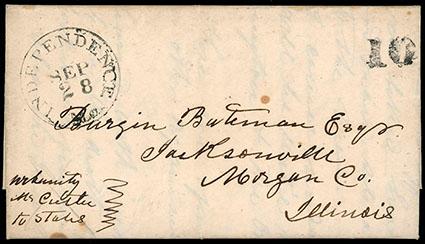 INDEPENDENCE
SEP
28
Mo.
10
Burgin Bateman Esqr
Jacksonville
Morgan Co.
Illinois
Mr
to States